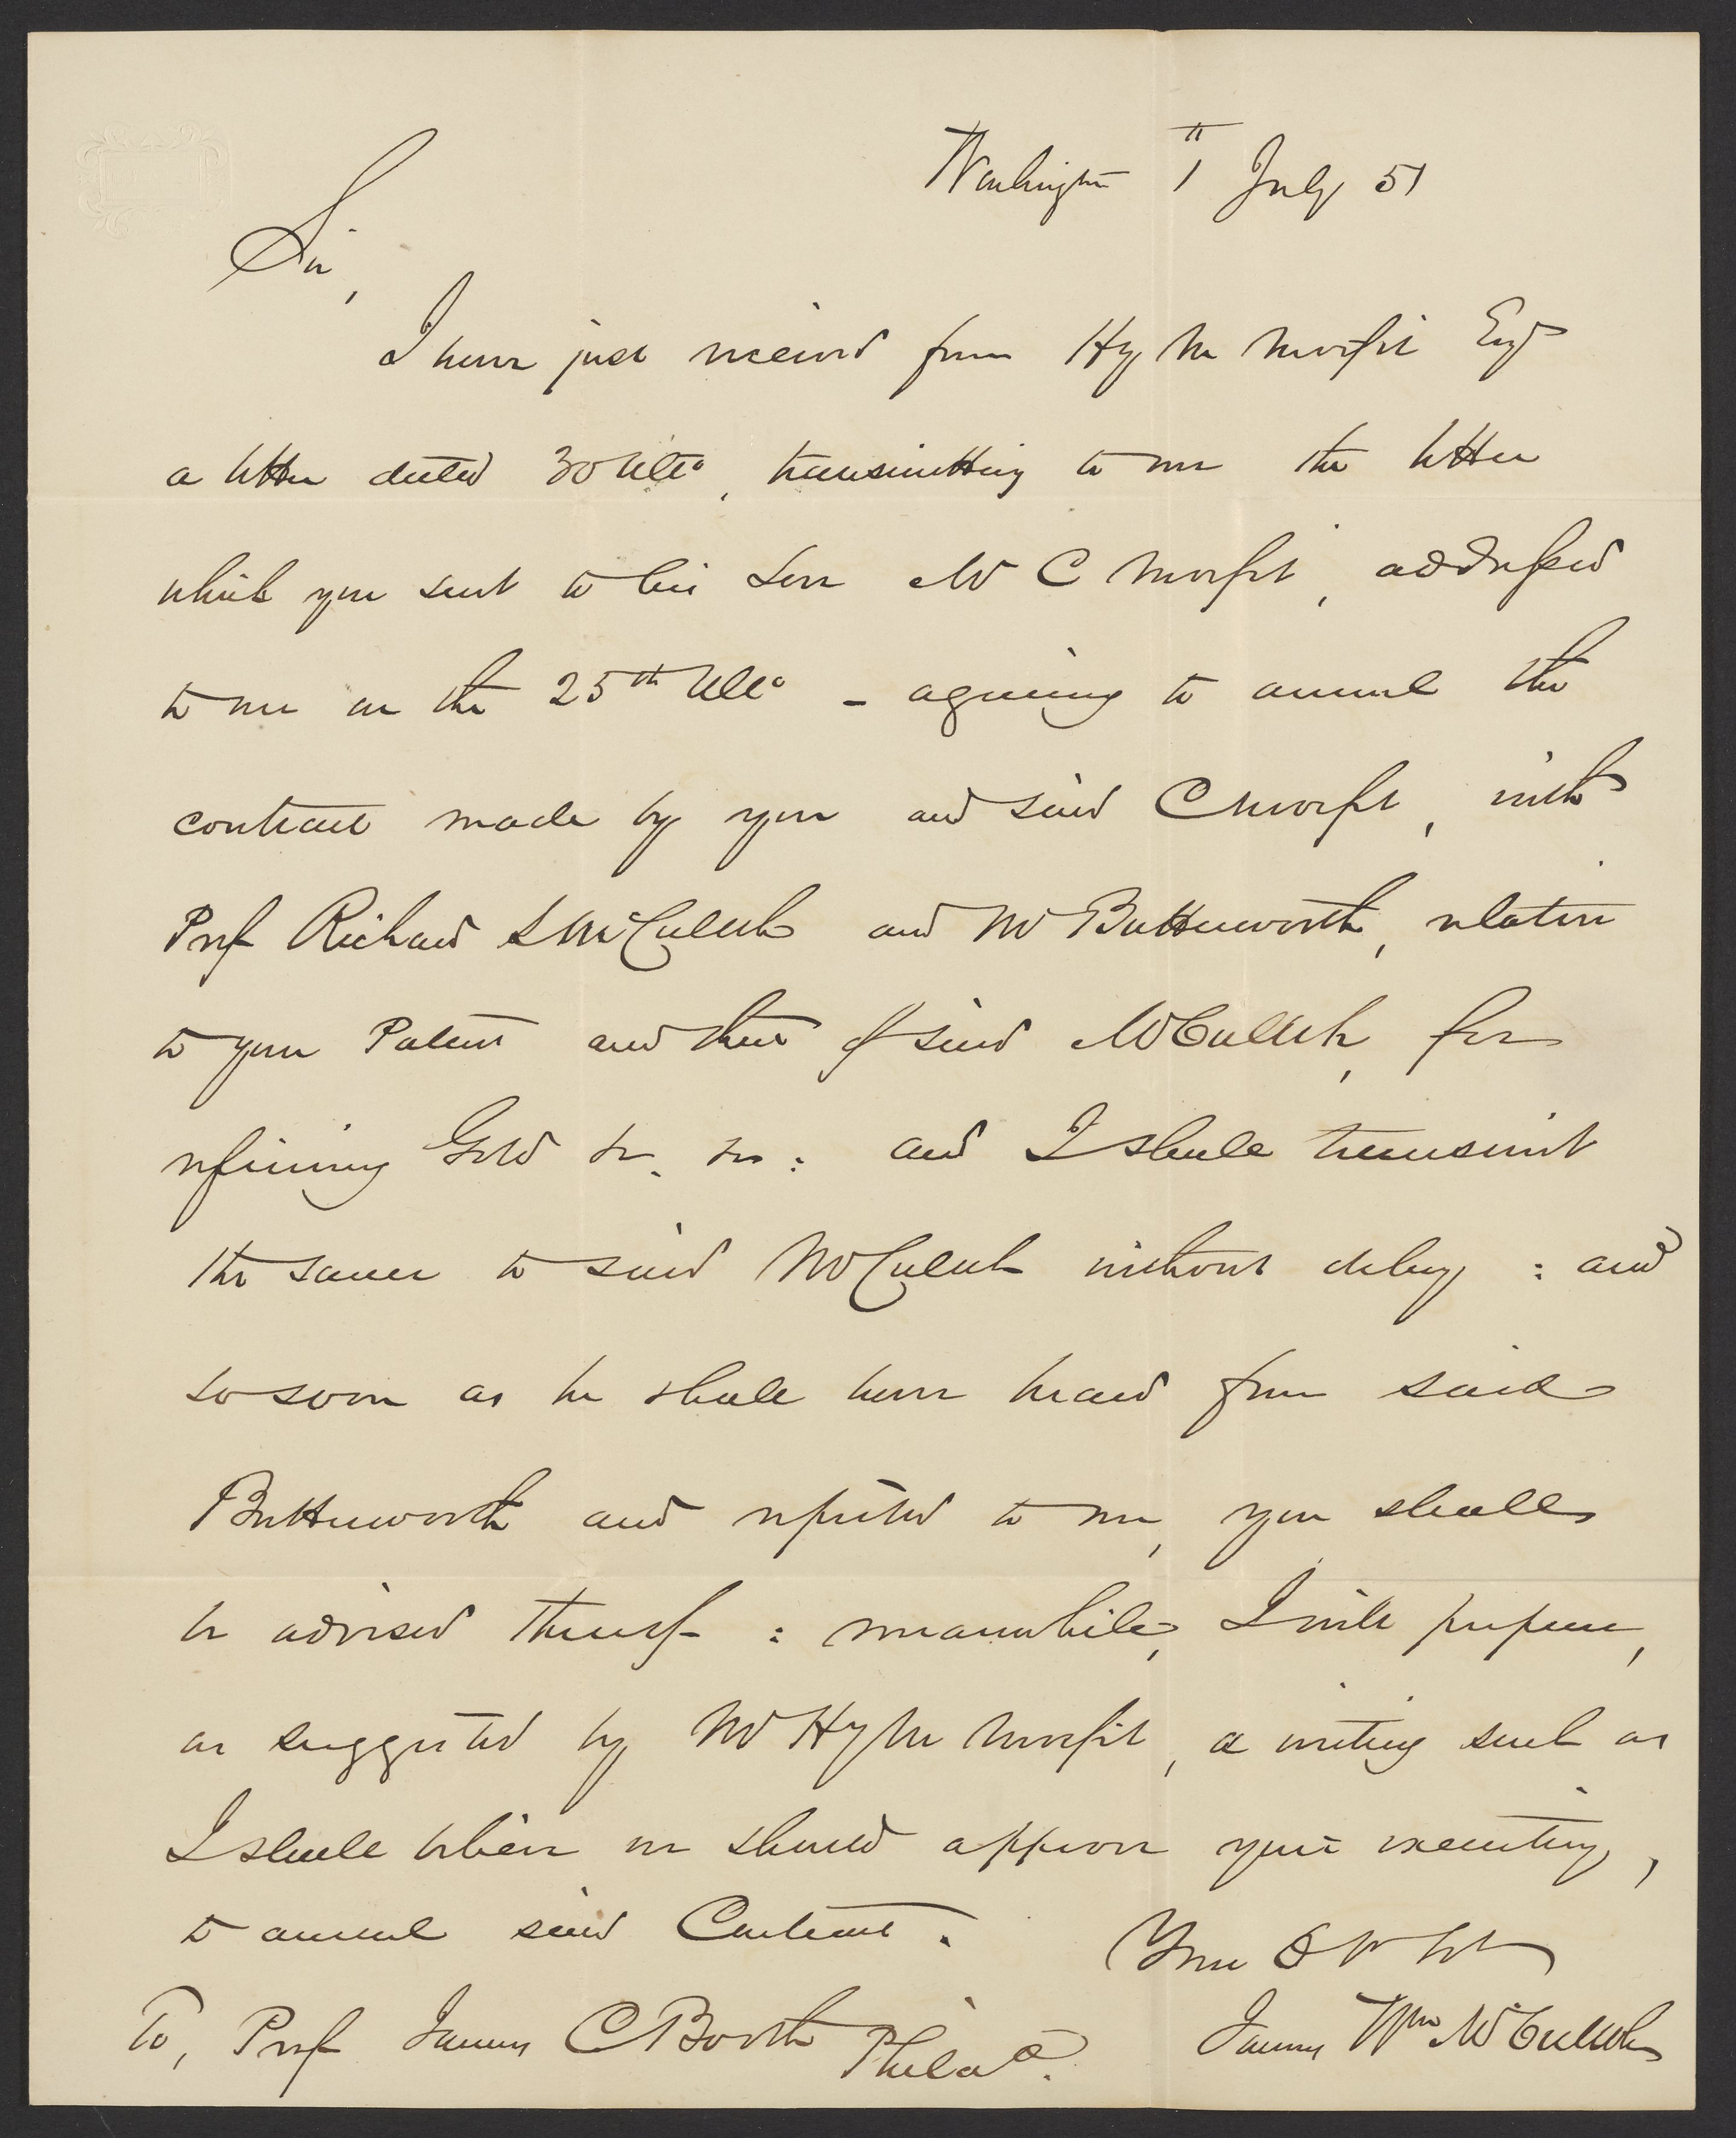 Washington 1st July 51
Sir,
I have just received from Hy M Morfit Esq
a letter dated 30 Ulto, transmitting to me the letter
which you sent to his Son Mr C Morfit, addressed
to me on the 25th Ulto - agreeing to annul the
contract made by you and said C Morfit, with
Prof Richard S McCulloh and Mr Butterworth, relative
to your Patent and that of said McCulloh, for
refining Gold &c. &c: and I shall transmit
the same to said McCulloh without delay : and
so soon as he shall have heard from said
Butterworth and reported to me, you shall
be advised thereof : meanwhile, I will prepare,
as suggested by Mr Hy M Morfit, a writing such as
I shall believe we should approve your executing,
to annul said Contract.
Your Obt Svt
To, Prof James C Booth Philada. James Wm McCulloh